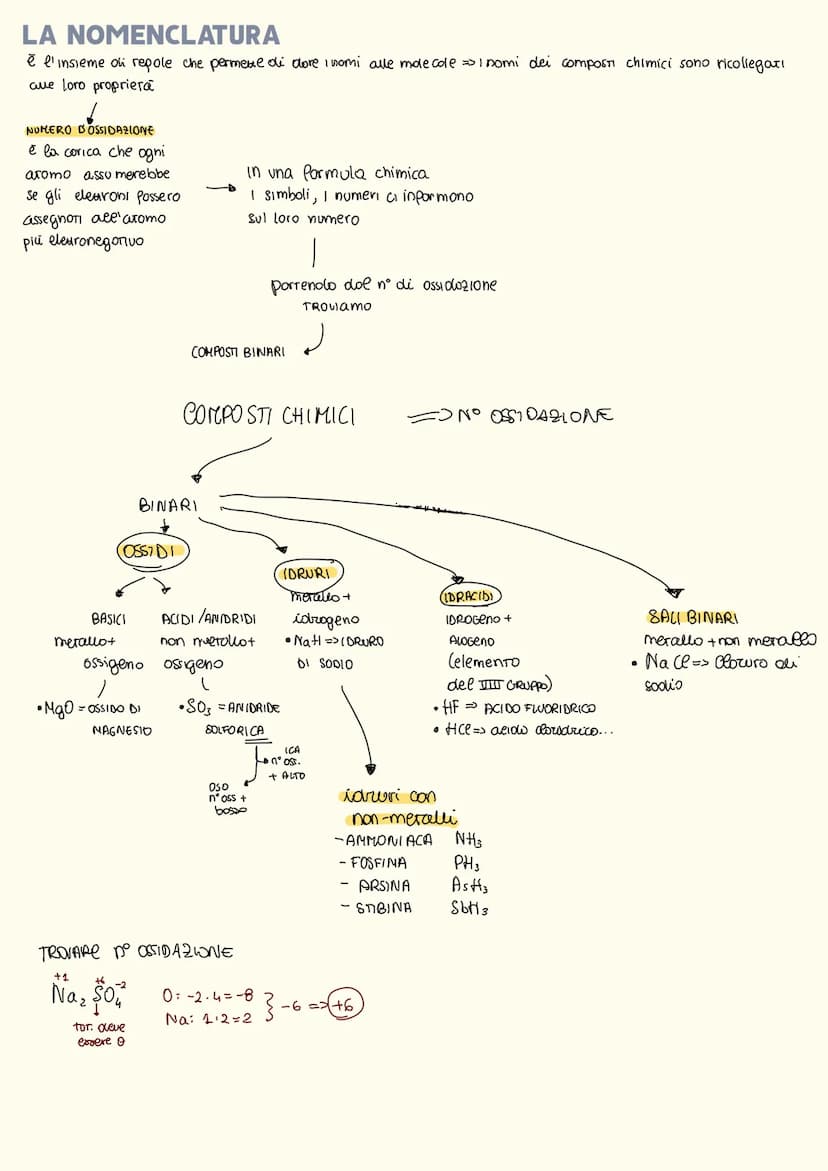 LA NOMENCLATURA
È l'insieme di regole che permette di dare i nomi alle molecole => i nomi dei composti chimici sono ricollegati
alle loro proprietà
NUMERO D'OSSIDAZIONE
è la carica che ogni
atomo assumerebbe
se gli elettroni fossero
assegnati all'atomo
più elettronegativo
In una formula chimica
i simboli, i numeri ci informano
sul loro numero
partendo dal n° di ossidazione
TROVIAMO
COMPOSTI BINARI
COMPOSTI CHIMICI => N° OSSIDAZIONE
BINARI
OSSIDI
BASICI
metallo+
ossigeno
•MgO = OSSIDO DI
MAGNESIO
ACIDI/ANIDRIDI
non metallo+
ossigeno
•SO₃ = ANIDRIDE
SOLFORICA
ICA
n° oss.
+ ALTO
OSO
n° oss +
basso
IDRURI
metallo +
idrogeno
•NaH => IDRURO
DI SODIO
idruri con
non-metalli
-AMMONIACA NH₃
- FOSFINA PH₃
- ARSINA AsH₃
- STIBINA SbH₃
IDRACIDI
IDROGENO +
ALOGENO
(elemento
del VII GRUPPO)
•HF => ACIDO FLUORIDRICO
•HCl => acido cloridrico...
SALI BINARI
metallo + non metallo
• NaCl => cloruro di
sodio
TROVARE n° OSSIDAZIONE
+1 +6 -2
Na₂SO₄
tot. deve
essere 0
O: -2·4=-8
Na: 1·2=2
} -6 => +6